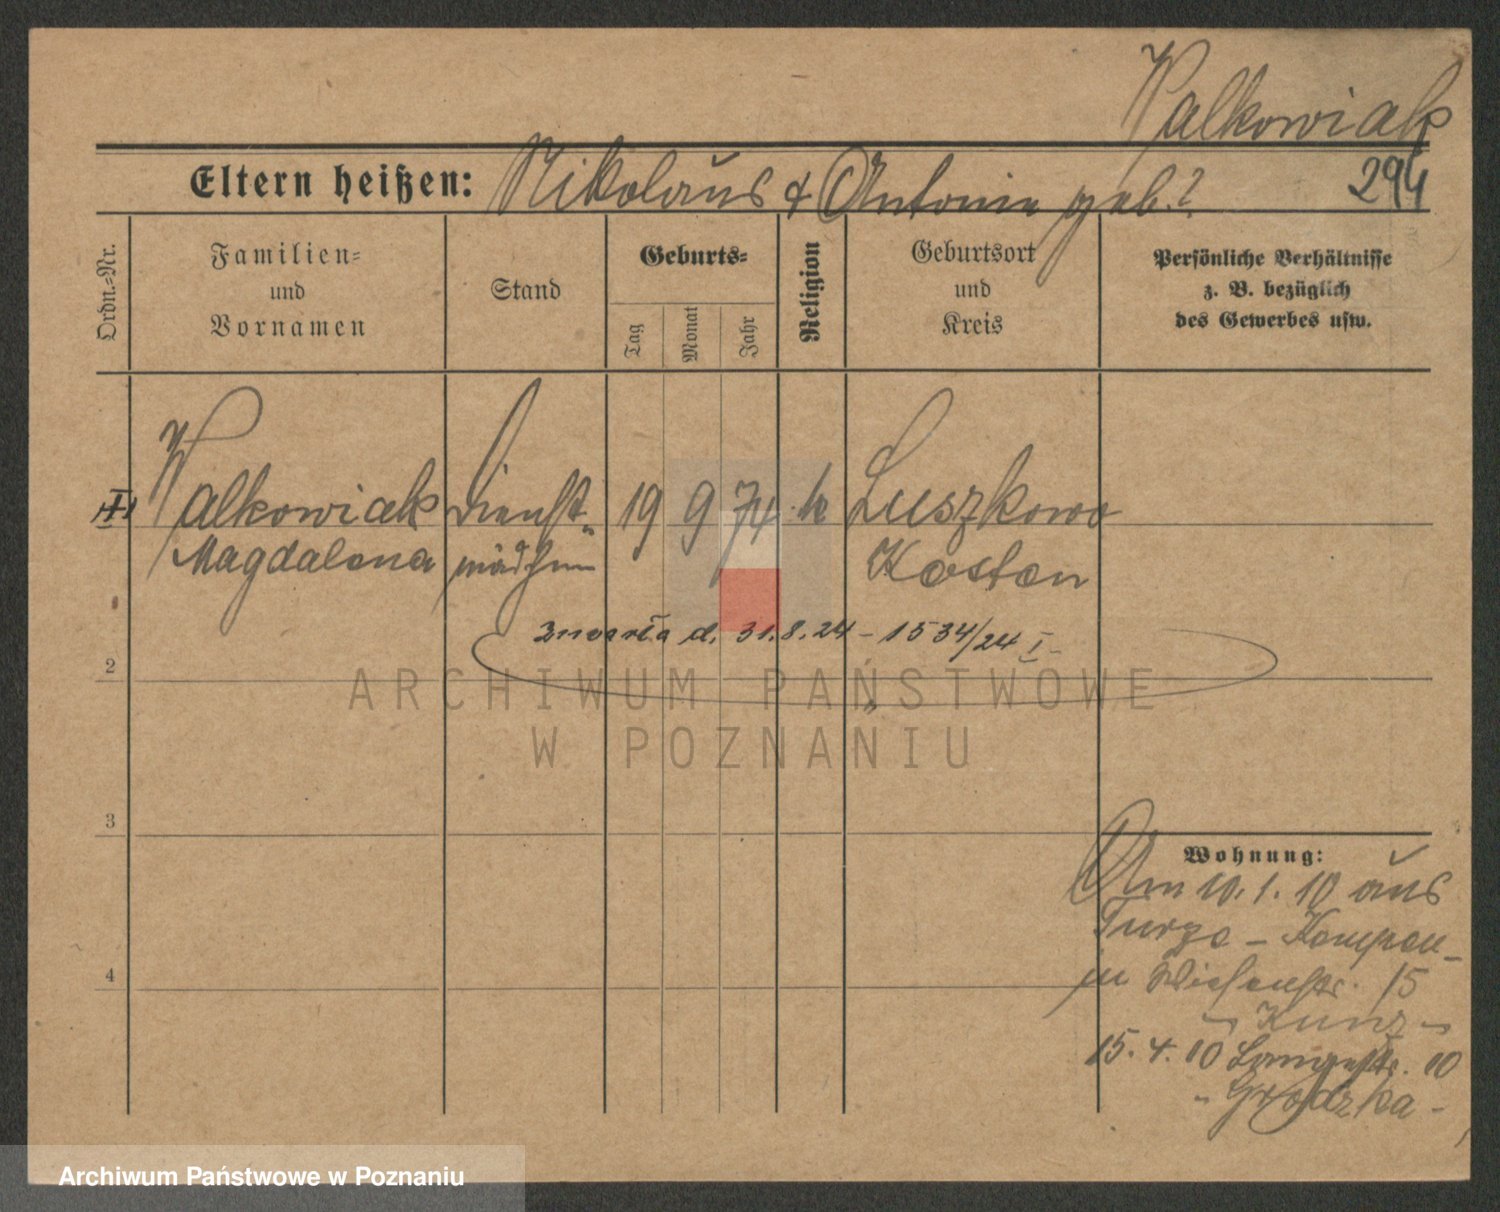 Walkowiak
Eltern heißen: Nikolaus & Antonie geb. ?
294
Ordn.-Nr.
Familien-
und
Vornamen
Stand
Geburts-
Tag
Monat
Jahr
Religion
Geburtsort
und
Kreis
Persönliche Verhältnisse
z. B. bezüglich
des Gewerbes usw.
Walkowiak Dienst- 19 9 74 k Luszkowo
Magdalena mädchen Kosten
zmarła d. 31.8.24 – 1534/24 I
2
ARCHIWUM PAŃSTWOWE
W POZNANIU
3
Wohnung:
Am 10.1.10 aus
4
in Wiesenstr. 15
- Kunz -
15.4.10 Langestr. 10
- Grodzka -
Archiwum Państwowe w Poznaniu